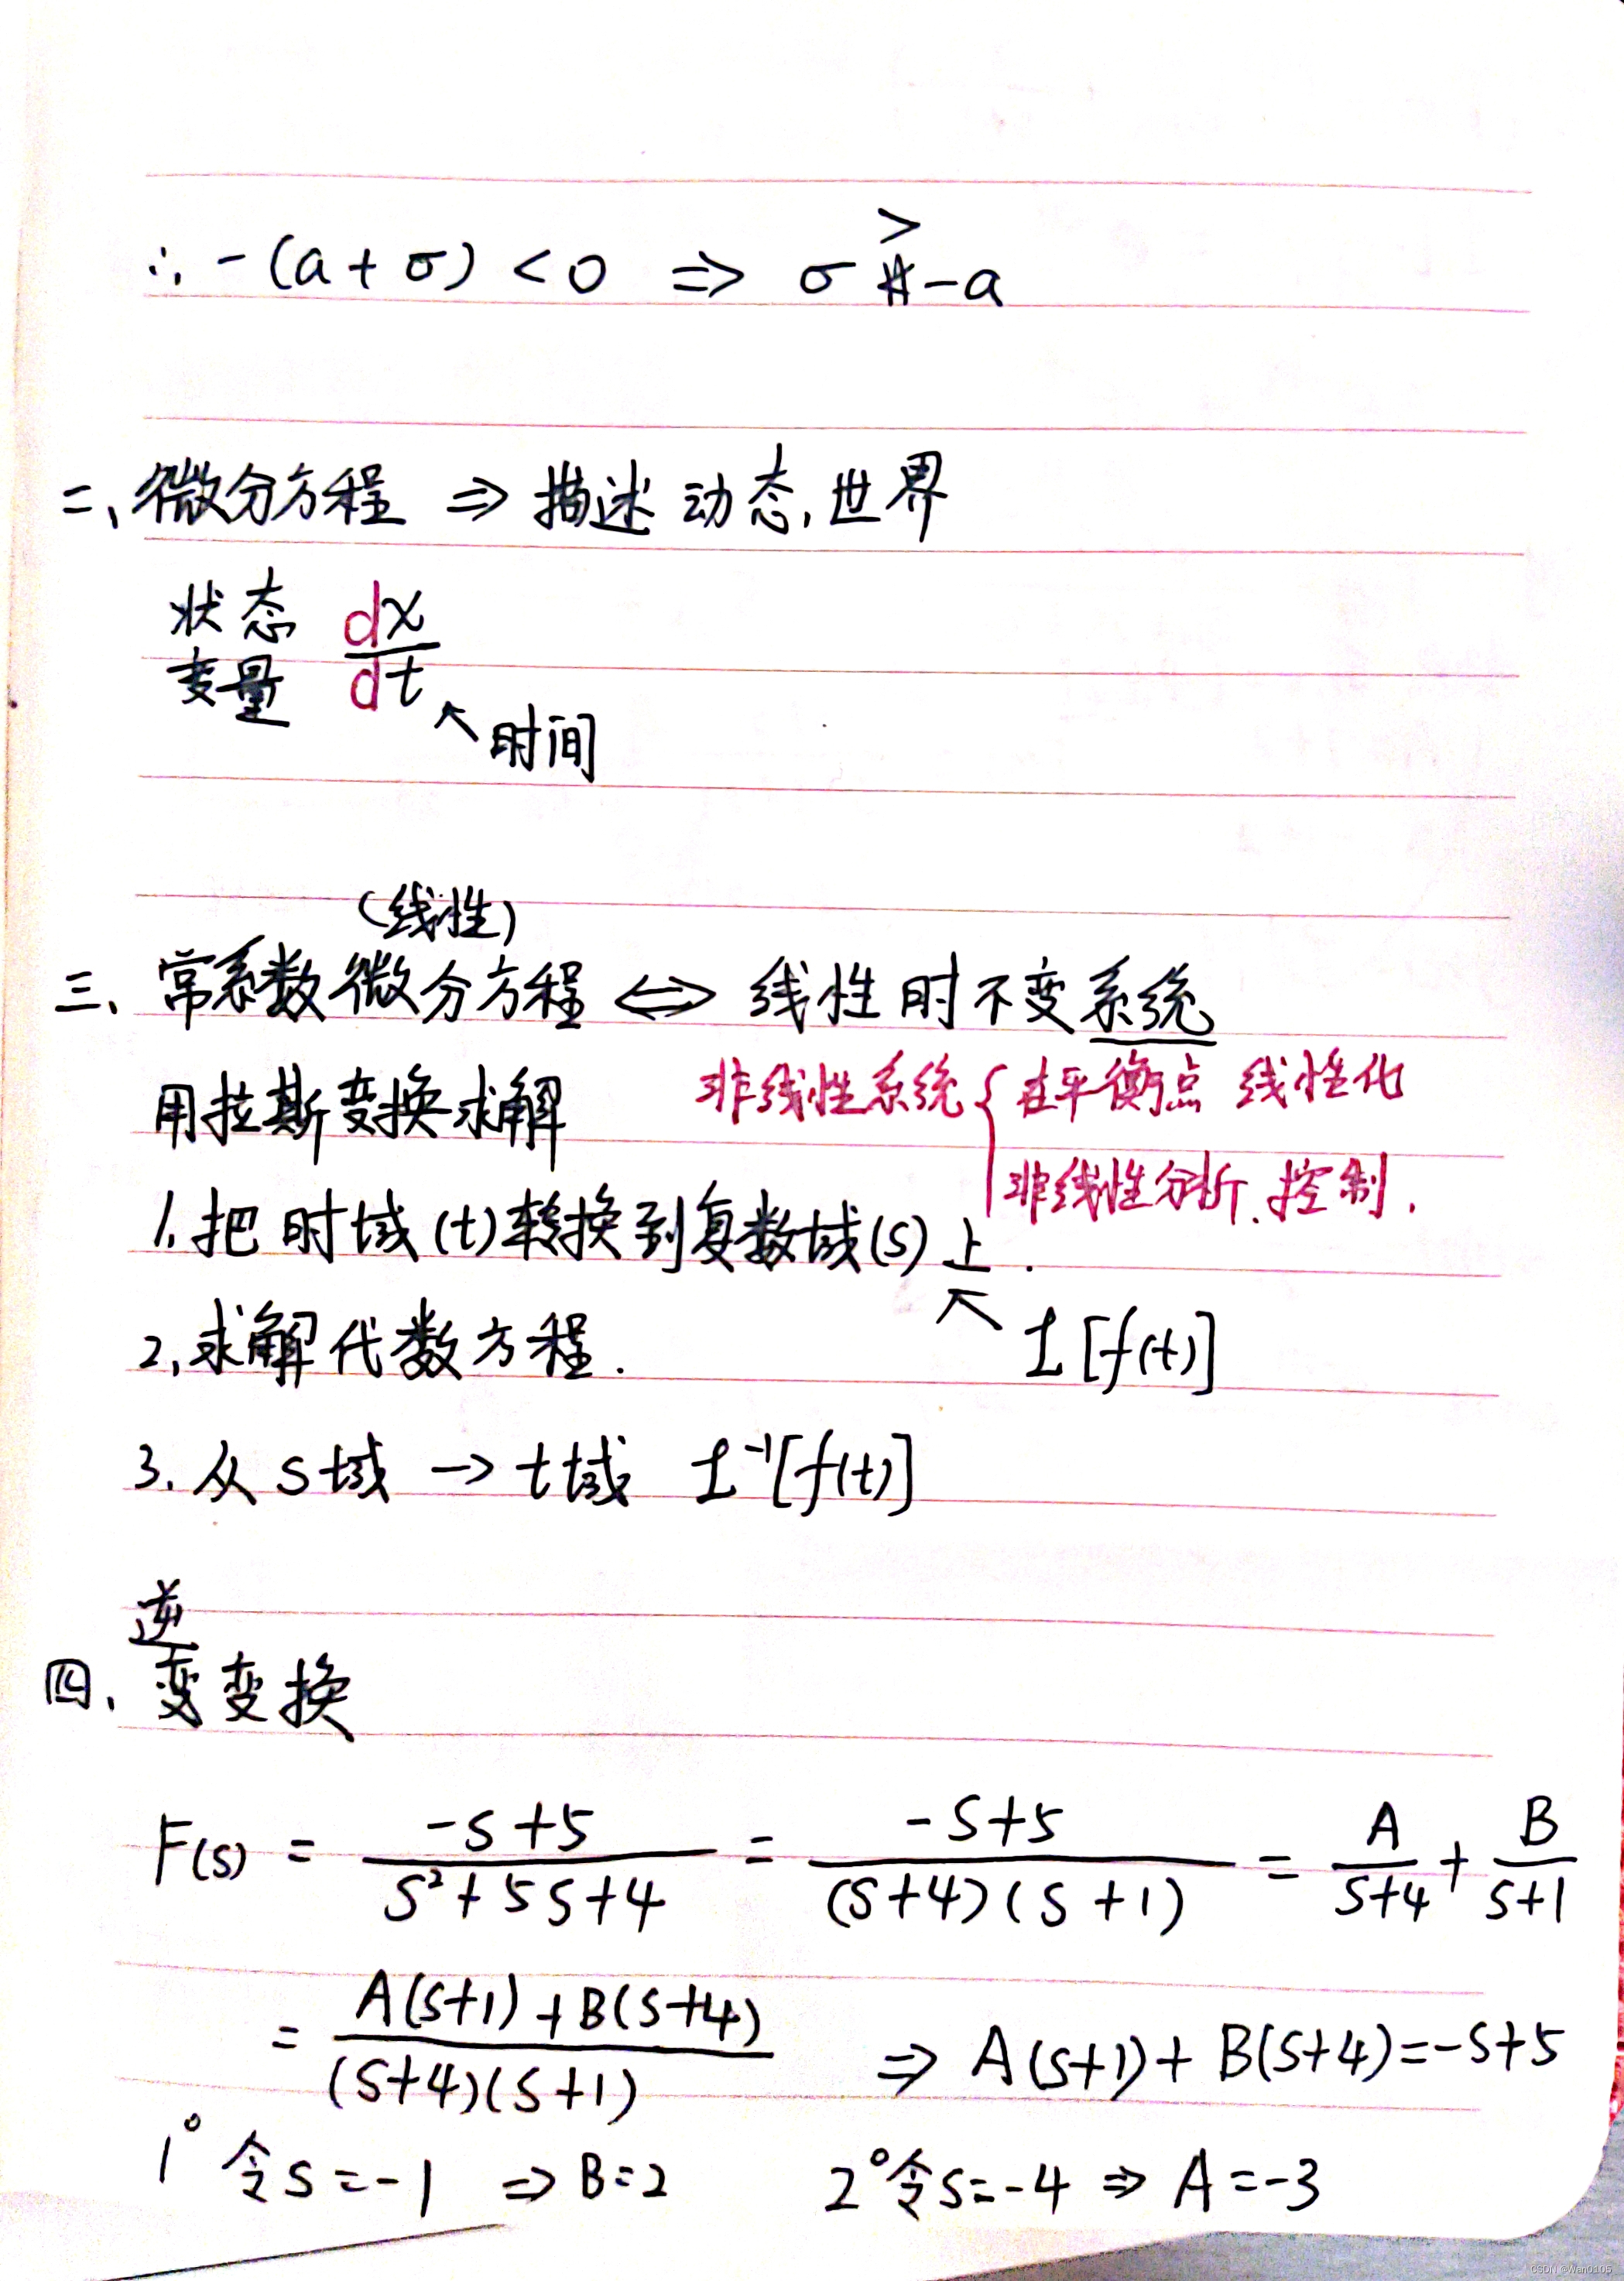 ∴ -(a+σ) < 0 ⇒ σ > -a
二、微分方程 ⇒ 描述动态,世界
状态变量 dx/dt
时间
(线性)
三、常系数微分方程 ⇔ 线性时不变系统
用拉斯变换求解
非线性系统 { 在平衡点 线性化
非线性分析.控制.
1.把时域(t)转换到复数域(s)上.
ℒ[f(t)]
2.求解代数方程.
3.从s域 → t域 ℒ⁻¹[f(t)]
逆
四、变变换
F(s) = (-s+5)/(s²+5s+4) = (-s+5)/((s+4)(s+1)) = A/(s+4) + B/(s+1)
= (A(s+1)+B(s+4))/((s+4)(s+1)) ⇒ A(s+1)+B(s+4)=-s+5
1° 令s=-1 ⇒ B=2 2°令s=-4 ⇒ A=-3
CSDN @Wan0105